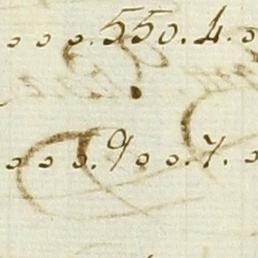 o o o. 550. 4. o
o o o. 9 o o. 7. o